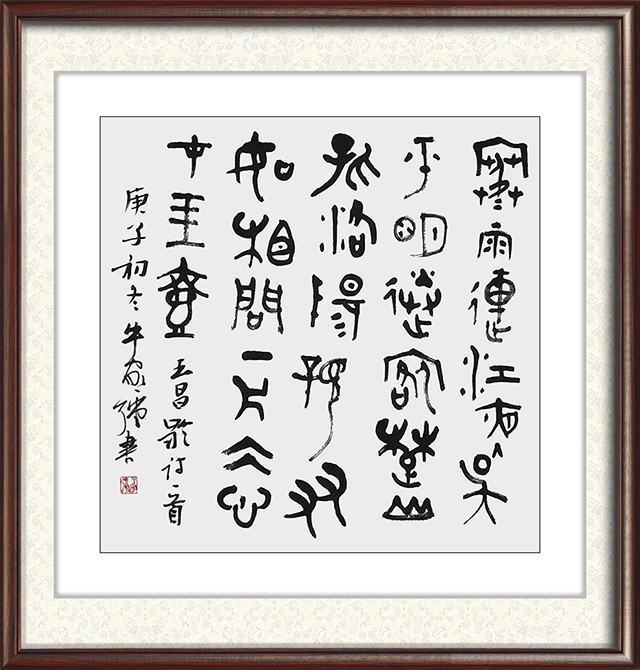 寒雨連江夜入吳
平明送客楚山
孤洛陽親友
如相問一片冰心
在玉壺 王昌齡詩一首
庚子初冬牛書